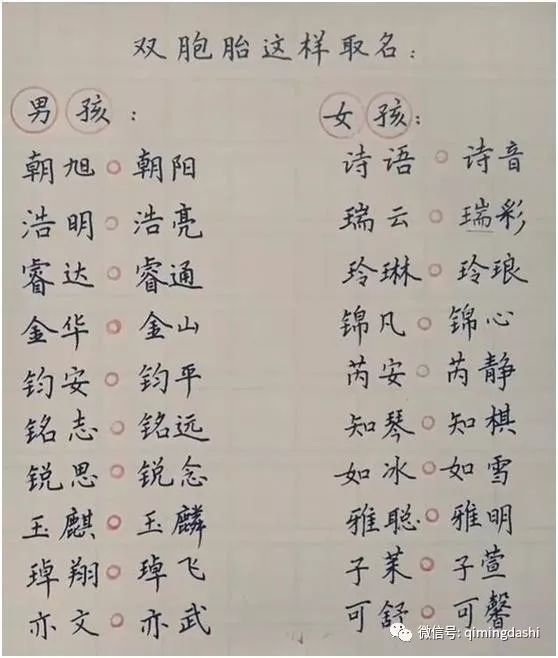 双胞胎这样取名：
男孩：
朝旭。朝阳
浩明。浩亮
睿达。睿通
金华。金山
钧安。钧平
铭志。铭远
锐思。锐念
玉麒。玉麟
琸翔。琸飞
亦文。亦武
女孩：
诗语。诗音
瑞云。瑞彩
玲琳。玲琅
锦凡。锦心
芮安。芮静
知琴。知棋
如冰。如雪
雅聪。雅明
子茉。子萱
可舒。可馨
微信号: qimingdashi